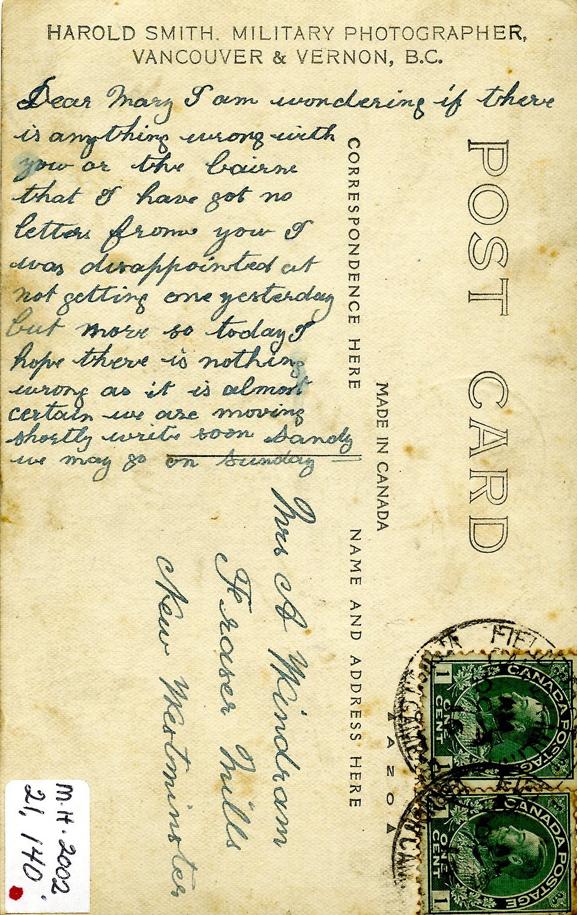 HAROLD SMITH. MILITARY PHOTOGRAPHER,
VANCOUVER & VERNON, B.C.
Dear Mary I am wondering if there
is anything wrong with
you or the bairne
that I have got no
letters frome you I
was disappointed at
not getting one yesterday
but more so today I
hope there is nothing
wrong as it is almost
certain we are moving
shortly write soon Sandy
we may go on Sunday
POST CARD
CORRESPONDENCE HERE
MADE IN CANADA
NAME AND ADDRESS HERE
Mrs A Windram
Fraser Mills
New Westminster
CANADA POSTAGE
1 ONE CENT 1
CANADA POSTAGE
1 ONE CENT 1
FIELD
M.H. 2002.
21, 140